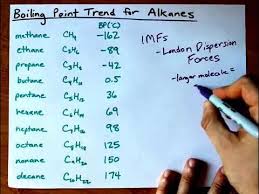 Boiling Point Trend for Alkanes
BP(°C)
methane CH4 -162
ethane C2H6 -89
propane C3H8 -42
butane C4H10 0.5
pentane C5H12 36
hexane C6H14 69
heptane C7H16 98
octane C8H18 125
nonane C9H20 150
decane C10H22 174
IMFs
- London Dispersion
Forces
- larger molecule =